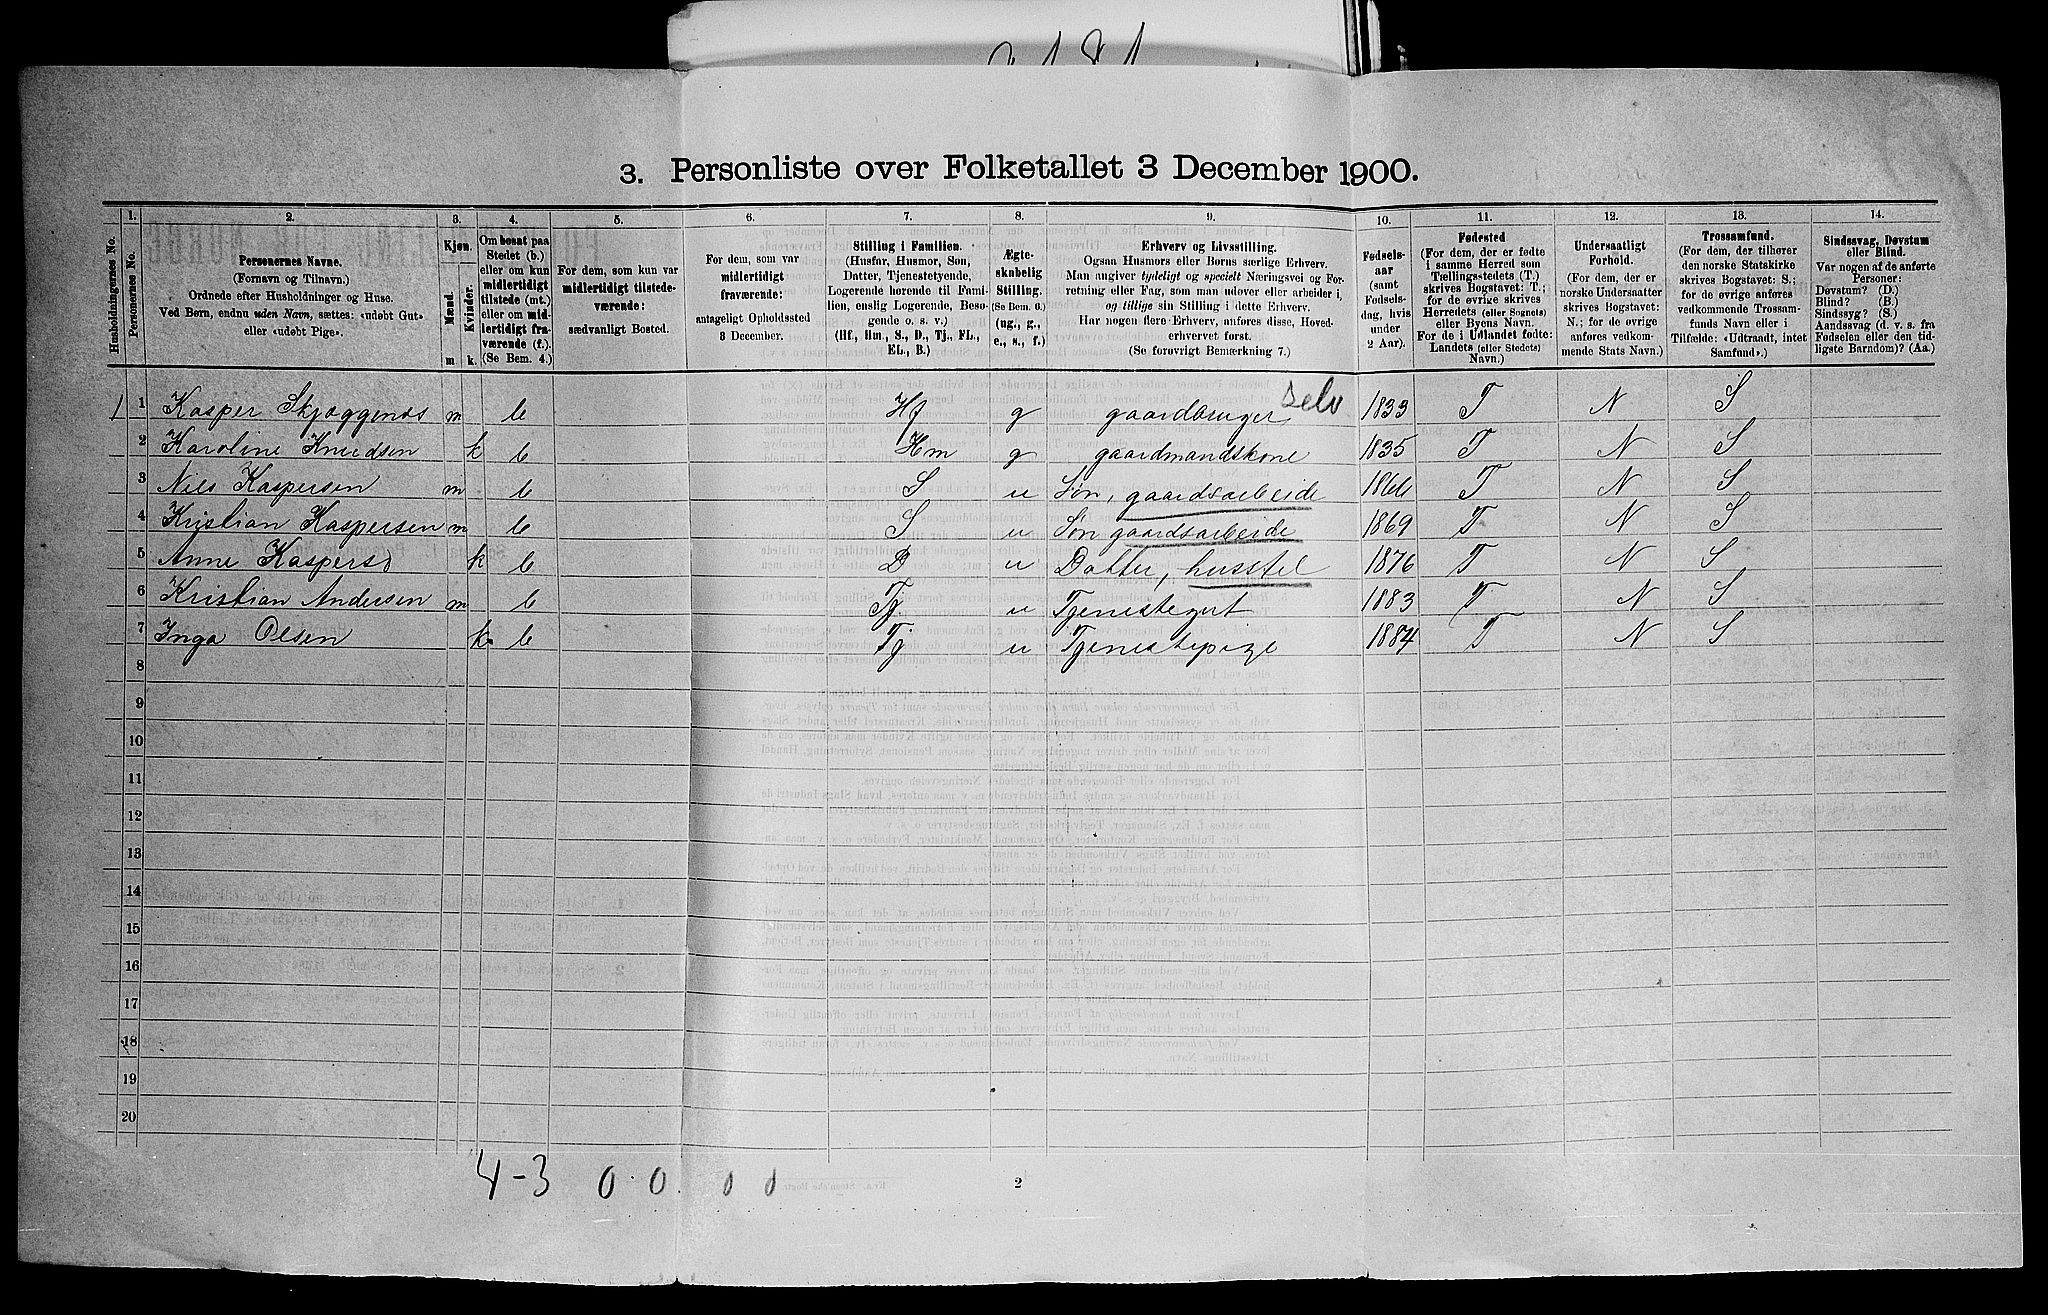 3. Personliste over Folketallet 3 December 1900.
1. 2. 3. 4. 5. 6. 7. 8. 9. 10. 11. 12. 13. 14.
Husholdningernes No.
Personernes No.
Personernes Navne.
(Fornavn og Tilnavn.)
Ordnede efter Husholdninger og Huse.
Ved Børn, endnu uden Navn, sættes: «udøbt Gut»
eller «udøbt Pige».
Kjøn.
Mænd.
Kvinder.
m k.
Om bosat paa
Stedet (b.)
eller om kun
midlertidigt
tilstede (mt.)
eller om mid-
lertidigt fra-
værende (f.).
(Se Bem. 4.)
For dem, som kun var
midlertidigt tilstede-
værende:
sædvanligt Bosted.
For dem, som var
midlertidigt
fraværende:
antageligt Opholdssted
3 December.
Stilling i Familien.
(Husfar, Husmor, Søn,
Datter, Tjenestetyende,
Logerende hørende til Fami-
lien, enslig Logerende, Besø-
gende o. s. v.)
(Hf., Hm., S., D., Tj., FL.,
EL., B.)
Ægte-
skabelig
Stilling.
(Se Bem. 6.)
(ug., g.,
e., s., f.)
Erhverv og Livsstilling.
Ogsaa Husmors eller Børns særlige Erhverv.
Man angiver tydeligt og specielt Næringsvei og For-
retning eller Fag, som man udøver eller arbeider i,
og tillige sin Stilling i dette Erhverv.
Har nogen flere Erhverv, anføres disse, Hoved-
erhvervet først.
(Se forøvrigt Bemærkning 7.)
Fødsels-
aar
(samt
Fødsels-
dag, hvis
under
2 Aar).
Fødested
(For dem, der er fødte
i samme Herred som
Tællingsstedets (T.)
skrives Bogstavet: T.;
for de øvrige skrives
Herredets (eller Sognets)
eller Byens Navn.
For de i Udlandet fødte:
Landets (eller Stedets)
Navn.)
Undersaatligt
Forhold.
(For dem, der er
norske Undersaatter
skrives Bogstavet:
N.; for de øvrige
anføres vedkom-
mende Stats Navn.)
Trossamfund.
(For dem, der tilhører
den norske Statskirke
skrives Bogstavet: S.;
for de øvrige anføres
vedkommende Trossam-
funds Navn eller i
Tilfælde: «Udtraadt, intet
Samfund».)
Sindssvag, Døvstum
eller Blind.
Var nogen af de anførte
Personer:
Døvstum? (D.)
Blind? (B.)
Sindssyg? (S.)
Aandssvag (d. v. s. fra
Fødselen eller den tid-
ligste Barndom)? (Aa.)
selv
1 1 Kasper Skjæggenæs m b Hf g gaardbruger 1833 T N S
2 Karoline Knudsen k b Hm g gaardmandskone 1835 T N S
3 Nils Kaspersen m b S u Søn, gaardsarbeide 1866 T N S
4 Kristian Kaspersen m b S u Søn gaardsarbeide 1869 T N S
5 Anne Kaspersd k b D u Datter, husstel 1876 T N S
6 Kristian Andersen m b Tj. u Tjenestegut 1883 T N S
7 Inga Olsen k b Tj u Tjenestepige 1884 T N S
8
9
10
11
12
13
14
15
16
17
18
19
20
4-3 0.0. 0 0
2